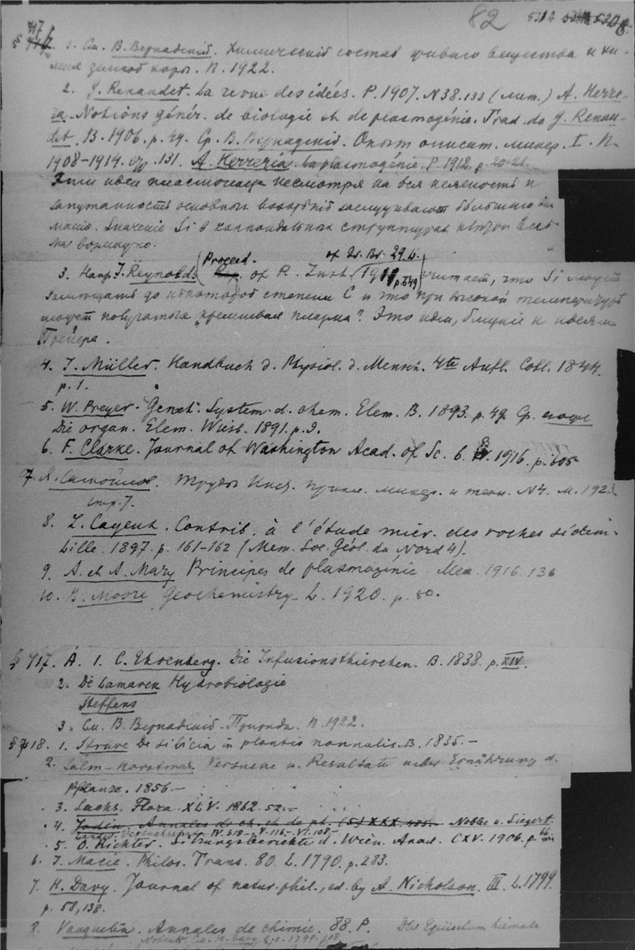 82
§ 717
1. См. В. Вернадский. Химический состав живого вещества и хи-
мия земной коры. П. 1922.
2. J. Renaudet. La revue des idées. P. 1907. N 38. 138 (лит.) A. Herre-
ra. Notions génér. de biologie et de plasmogénie. Trad. de J. Renau-
det. B. 1906. p. 49. Ср. В. Вернадский. Опыт описат. минер. I. П.
1908-1914. стр. 131. A. Herrera. La plasmogénie. P. 1912. p. 20-21.
Эти идеи плазмогенеза несмотря на всю неясность и
спутанность основных воззрений заслуживают большего вни-
мания. Значение Si в
3. Напр. J. Reynolds (Proceed. of R. Inst. of Gr. Br. 1911 считает, что Si может
замещать до некоторой степени C и что при высокой температуре
может получаться "кремневая плазма". Это идеи, близкие к идеям
Прейера.
4. J. Müller. Handbuch d. Physiol. d. Mensch. 4te Aufl. Cobl. 1844.
p. 1.
5. W. Preyer. Genet. System d. chem. Elem. B. 1893. p. 49. Ср.
Die organ. Elem. Wiesb. 1891. p. 9.
6. F. Clarke. Journal of Washington Acad. of Sc. 6. 1916. p. 605
7. Я. Самойлов. Труды Инст. прикл. минер. и петр. N 4. М. 1923.
стр. 7.
8. L. Cayeux. Contrib. à l'étude micr. des roches sédim.
Lille. 1897. p. 161-162 (Mem. Soc. Géol. du Nord 4).
9. A. et A. Mary Principes de plasmogénie. 1916. 136
10. B. Moore Geochemistry. L. 1920. p. 80.
§ 717. A. 1. C. Ehrenberg. Die Infusionsthierchen. B. 1838. p. XIV.
2. De Lamarck Hydrobiologie
Steffens
3. См. В. Вернадский. Природа. П. 1922.
§ 718. 1. Struve De silicia in plantis nonnullis. B. 1835.-
2. Salm-Horstmar Versuche u. Resultate über Ernährung d.
Pflanze. 1856-
3. Sachs. Flora XLV. 1862. 52.-
4. Jodin. Annales de ch. et de ph. (5) XXX. 485. Nobbe u. Siegert
Landw. Versuchsstat. IV. 318- V. 116- VI. 108.-
5. O. Richter. Sitzungsberichte d. Wien. Akad. CXV. 1906. p.
6. J. Macie. Philos. Trans. 80. L. 1790. p. 283.
7. H. Davy. Journal of natur. phil., ed. by A. Nicholson. III. L. 1799.
p. 58, 138.
8. Vauquelin. Annales de chimie. 88. P. Das Equisetum hiemale